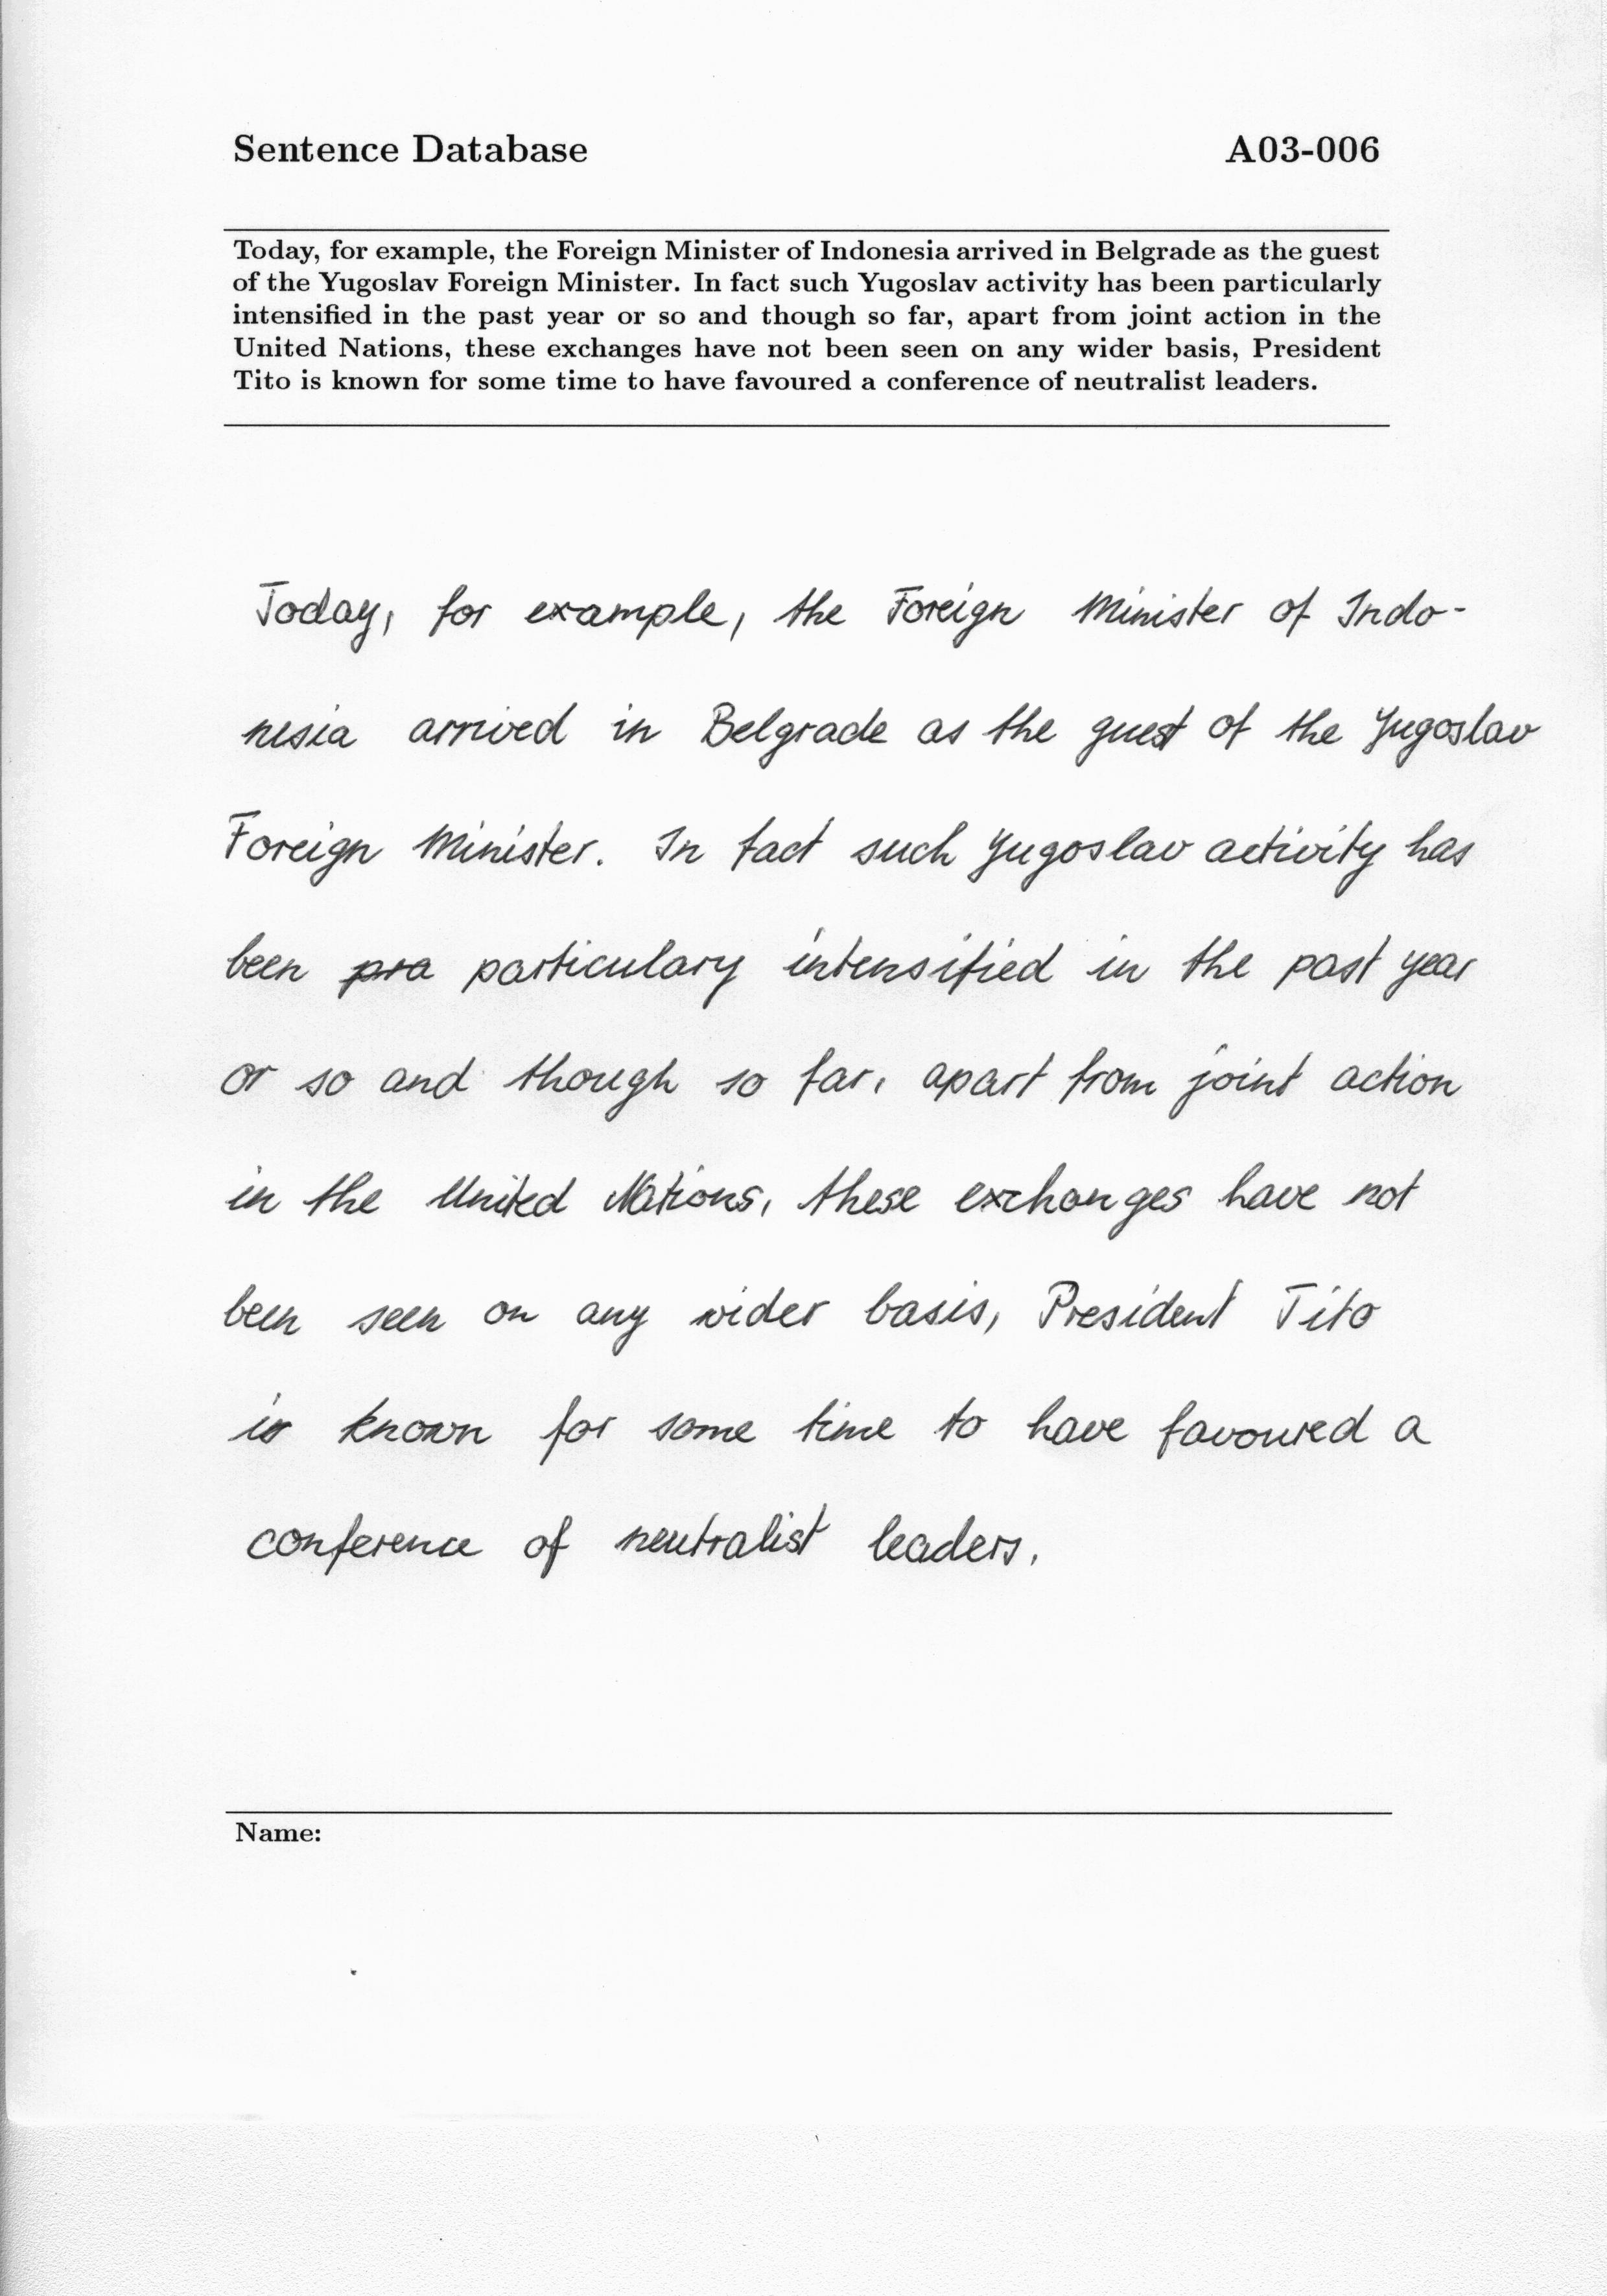 Sentence Database A03-006
Today, for example, the Foreign Minister of Indonesia arrived in Belgrade as the guest
of the Yugoslav Foreign Minister. In fact such Yugoslav activity has been particularly
intensified in the past year or so and though so far, apart from joint action in the
United Nations, these exchanges have not been seen on any wider basis, President
Tito is known for some time to have favoured a conference of neutralist leaders.
Today, for example, the Foreign Minister of Indo-
nesia arrived in Belgrade as the guest of the Yugoslav
Foreign Minister. In fact such Yugoslav activity has
been pra particulary intensified in the past year
or so and though so far, apart from joint action
in the United Nations, these exchanges have not
been seen on any wider basis, President Tito
is known for some time to have favoured a
conference of neutralist leaders.
Name: